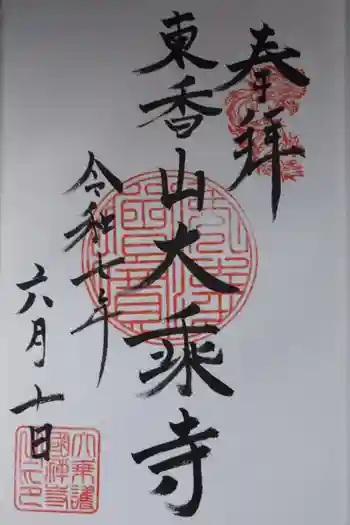 奉拝
東香山大乗寺
令和七年
六月十日